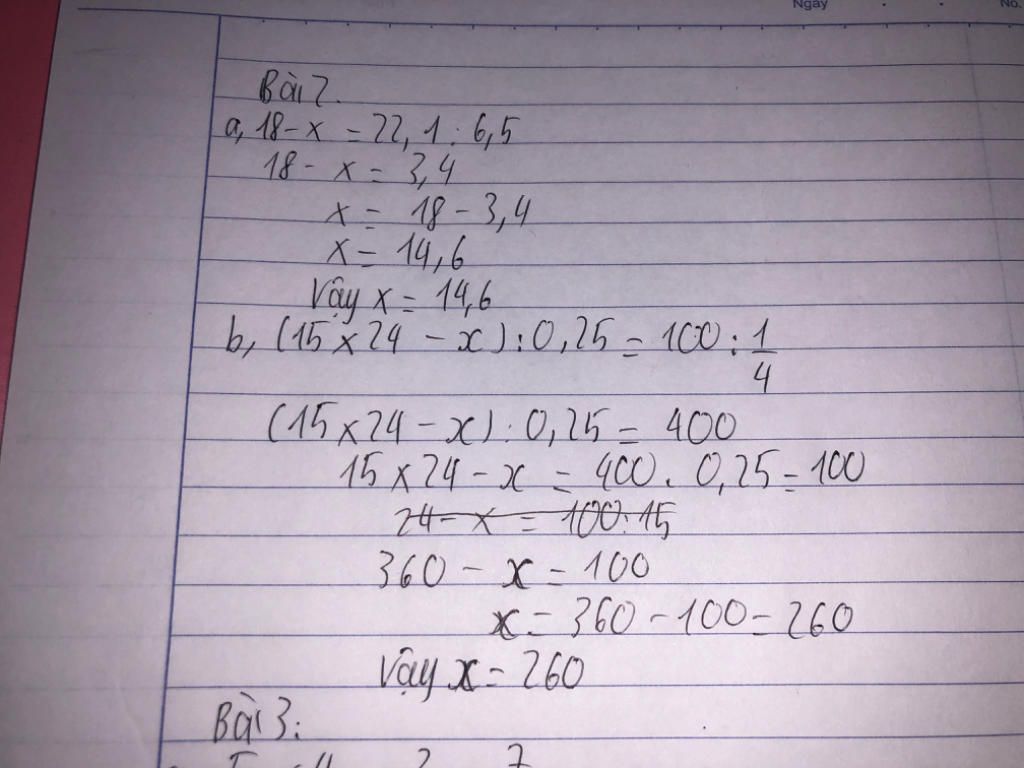 Ngày
No.
Bài 2.
a, 18 - x = 22,1 : 6,5
18 - x = 3,4
x = 18 - 3,4
x = 14,6
Vậy x = 14,6
b, (15 x 24 - x) : 0,25 = 100 : 1/4
(15 x 24 - x) : 0,25 = 400
15 x 24 - x = 400 . 0,25 = 100
24 - x = 100 : 15
360 - x = 100
x = 360 - 100 = 260
Vậy x = 260
Bài 3: